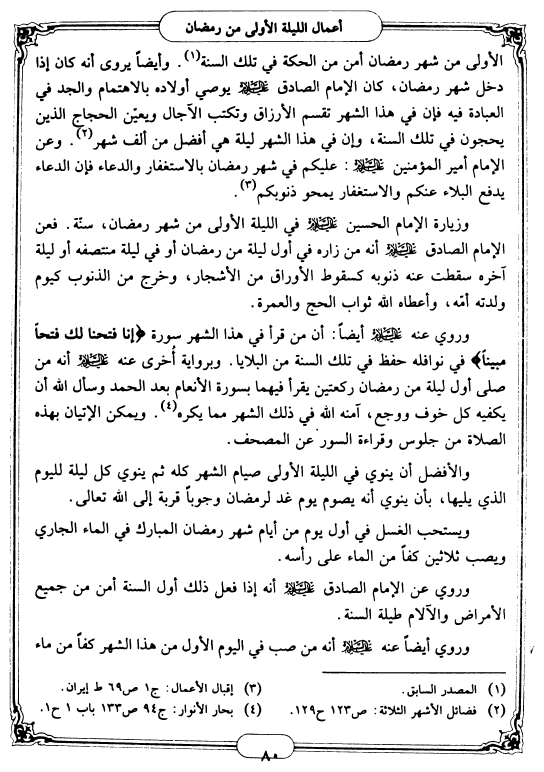 أعمال الليلة الأولى من رمضان
الأولى من شهر رمضان أمن من الحكة في تلك السنة(١). وأيضاً يروى أنه كان إذا
دخل شهر رمضان، كان الإمام الصادق عليه السلام يوصي أولاده بالاهتمام والجد في
العبادة فيه فإن في هذا الشهر تقسم الأرزاق وتكتب الآجال ويعيّن الحجاج الذين
يحجون في تلك السنة، وإن في هذا الشهر ليلة هي أفضل من ألف شهر(٢). وعن
الإمام أمير المؤمنين عليه السلام: عليكم في شهر رمضان بالاستغفار والدعاء فإن الدعاء
يدفع البلاء عنكم والاستغفار يمحو ذنوبكم(٣).
وزيارة الإمام الحسين عليه السلام في الليلة الأولى من شهر رمضان، سنّة. فعن
الإمام الصادق عليه السلام أنه من زاره في أول ليلة من رمضان أو في ليلة منتصفه أو ليلة
آخره سقطت عنه ذنوبه كسقوط الأوراق من الأشجار، وخرج من الذنوب كيوم
ولدته أمّه، وأعطاه الله ثواب الحج والعمرة.
وروي عنه عليه السلام أيضاً: أن من قرأ في هذا الشهر سورة ﴿إنا فتحنا لك فتحاً
مبيناً﴾ في نوافله حفظ في تلك السنة من البلايا. وبرواية أُخرى عنه عليه السلام أنه من
صلى أول ليلة من رمضان ركعتين يقرأ فيهما بسورة الأنعام بعد الحمد وسأل الله أن
يكفيه كل خوف ووجع، آمنه الله في ذلك الشهر مما يكره(٤). ويمكن الإتيان بهذه
الصلاة من جلوس وقراءة السور عن المصحف.
والأفضل أن ينوي في الليلة الأولى صيام الشهر كله ثم ينوي كل ليلة لليوم
الذي يليها، بأن ينوي أنه يصوم يوم غد لرمضان وجوباً قربة إلى الله تعالى.
ويستحب الغسل في أول يوم من أيام شهر رمضان المبارك في الماء الجاري
ويصب ثلاثين كفاً من الماء على رأسه.
وروي عن الإمام الصادق عليه السلام أنه إذا فعل ذلك أول السنة أمن من جميع
الأمراض والآلام طيلة السنة.
وروي أيضاً عنه عليه السلام أنه من صب في اليوم الأول من هذا الشهر كفاً من ماء
(١) المصدر السابق.
(٢) فضائل الأشهر الثلاثة: ص١٢٣ ح١٢٩.
(٣) إقبال الأعمال: ج١ ص٦٩ ط إيران.
(٤) بحار الأنوار: ج٩٤ ص١٣٣ باب ١ ح١.
٨٠